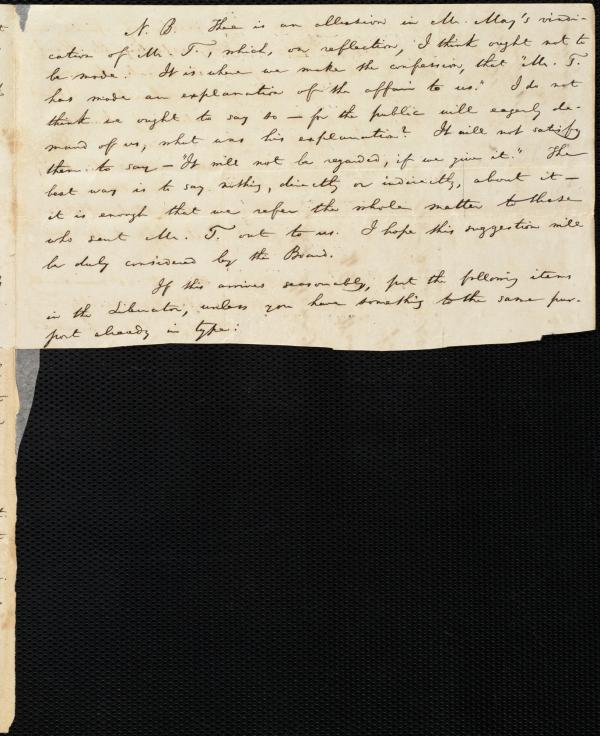 N. B. There is an allusion in Mr. May's vindi-
cation of Mr. T., which, on reflection, I think ought not to
be made. It is where we make the confession, that "Mr. T.
has made an explanation of the affair to us." I do not
think we ought to say so — for the public will eagerly de-
mand of us, what was his explanation? It will not satisfy
them to say — "It will not be regarded, if we give it." The
best way is to say nothing, directly or indirectly, about it —
it is enough that we refer the whole matter to those
who sent Mr. T. out to us. I hope this suggestion will
be duly considered by the Board.
If this arrives seasonably, put the following items
in the Liberator, unless you have something to the same pur-
port already in type: